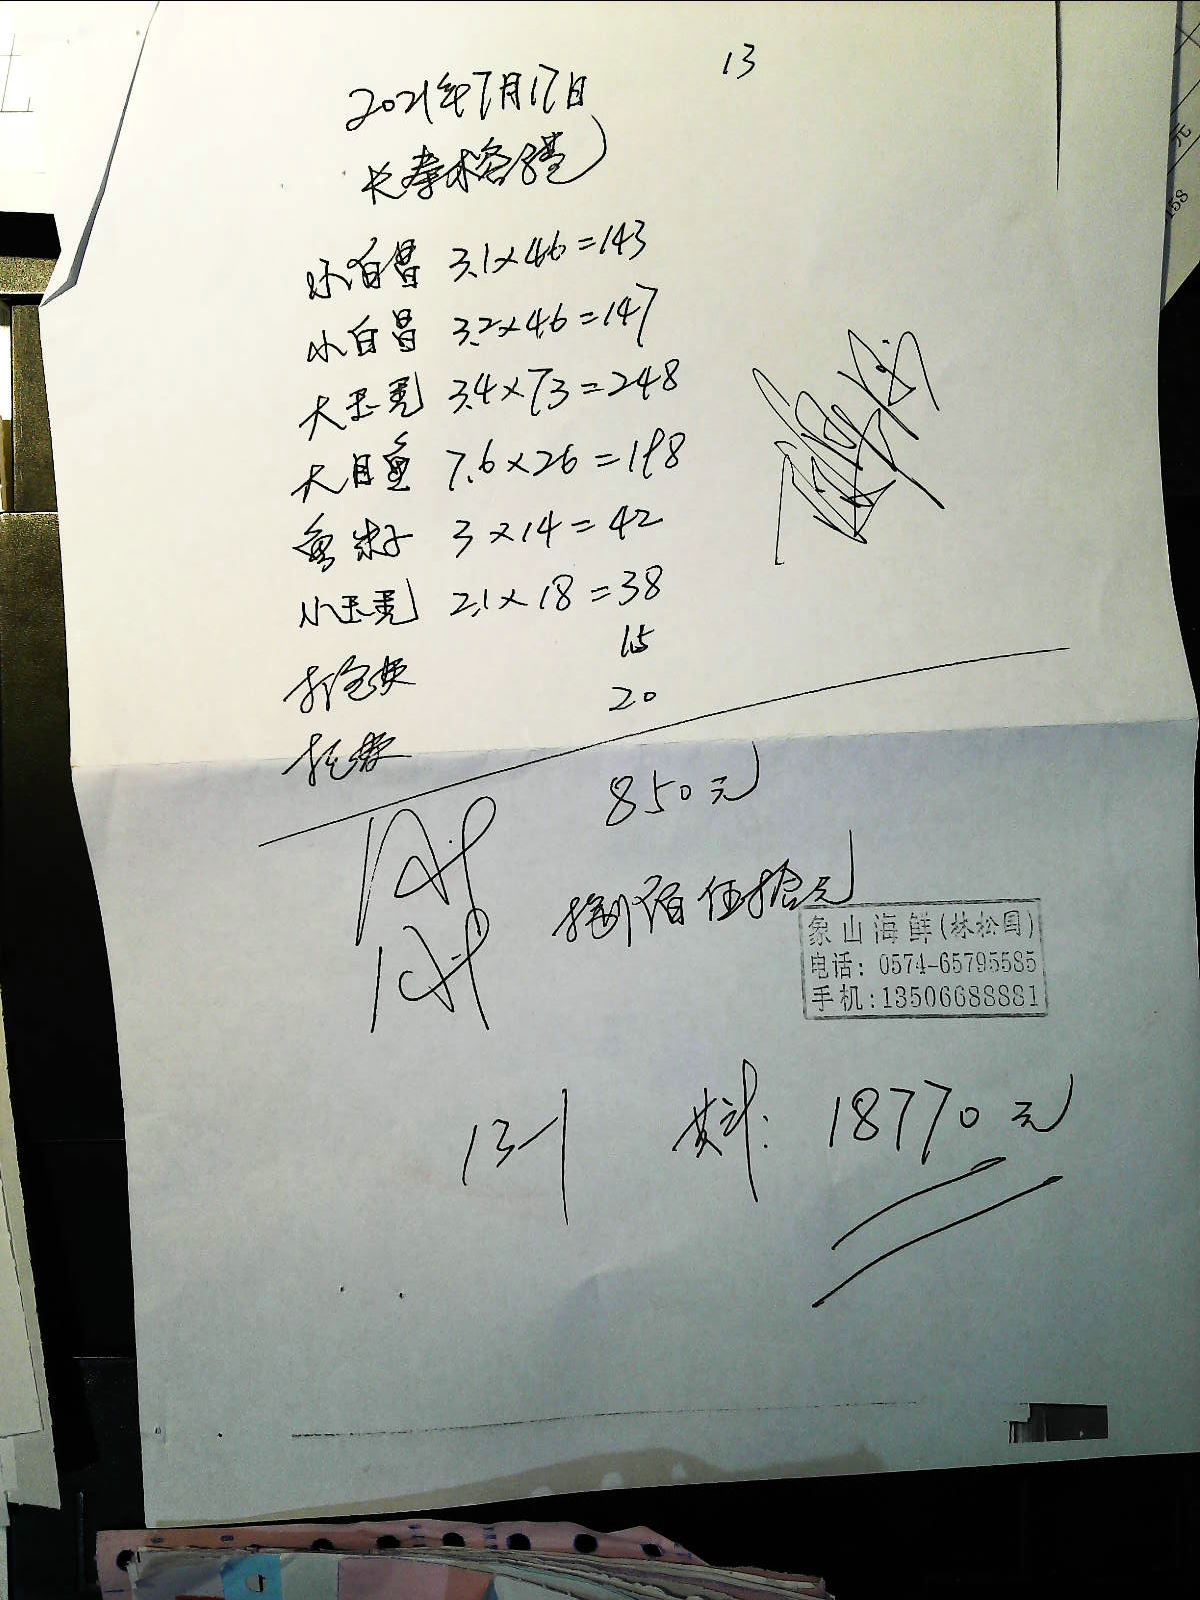 13
2021年7月17日
小白昌 3.1×46=143
小白昌 3.2×46=147
大玉秃 3.4×73=248
大目鱼 7.6×26=198
鱼籽 3×14=42
小玉秃 2.1×18=38
打包费 15
托费 20
850元
捌佰伍拾元
象山海鲜(林松国)
电话: 0574-65795585
手机:13506688881
13-1 共计: 18770元
元
158